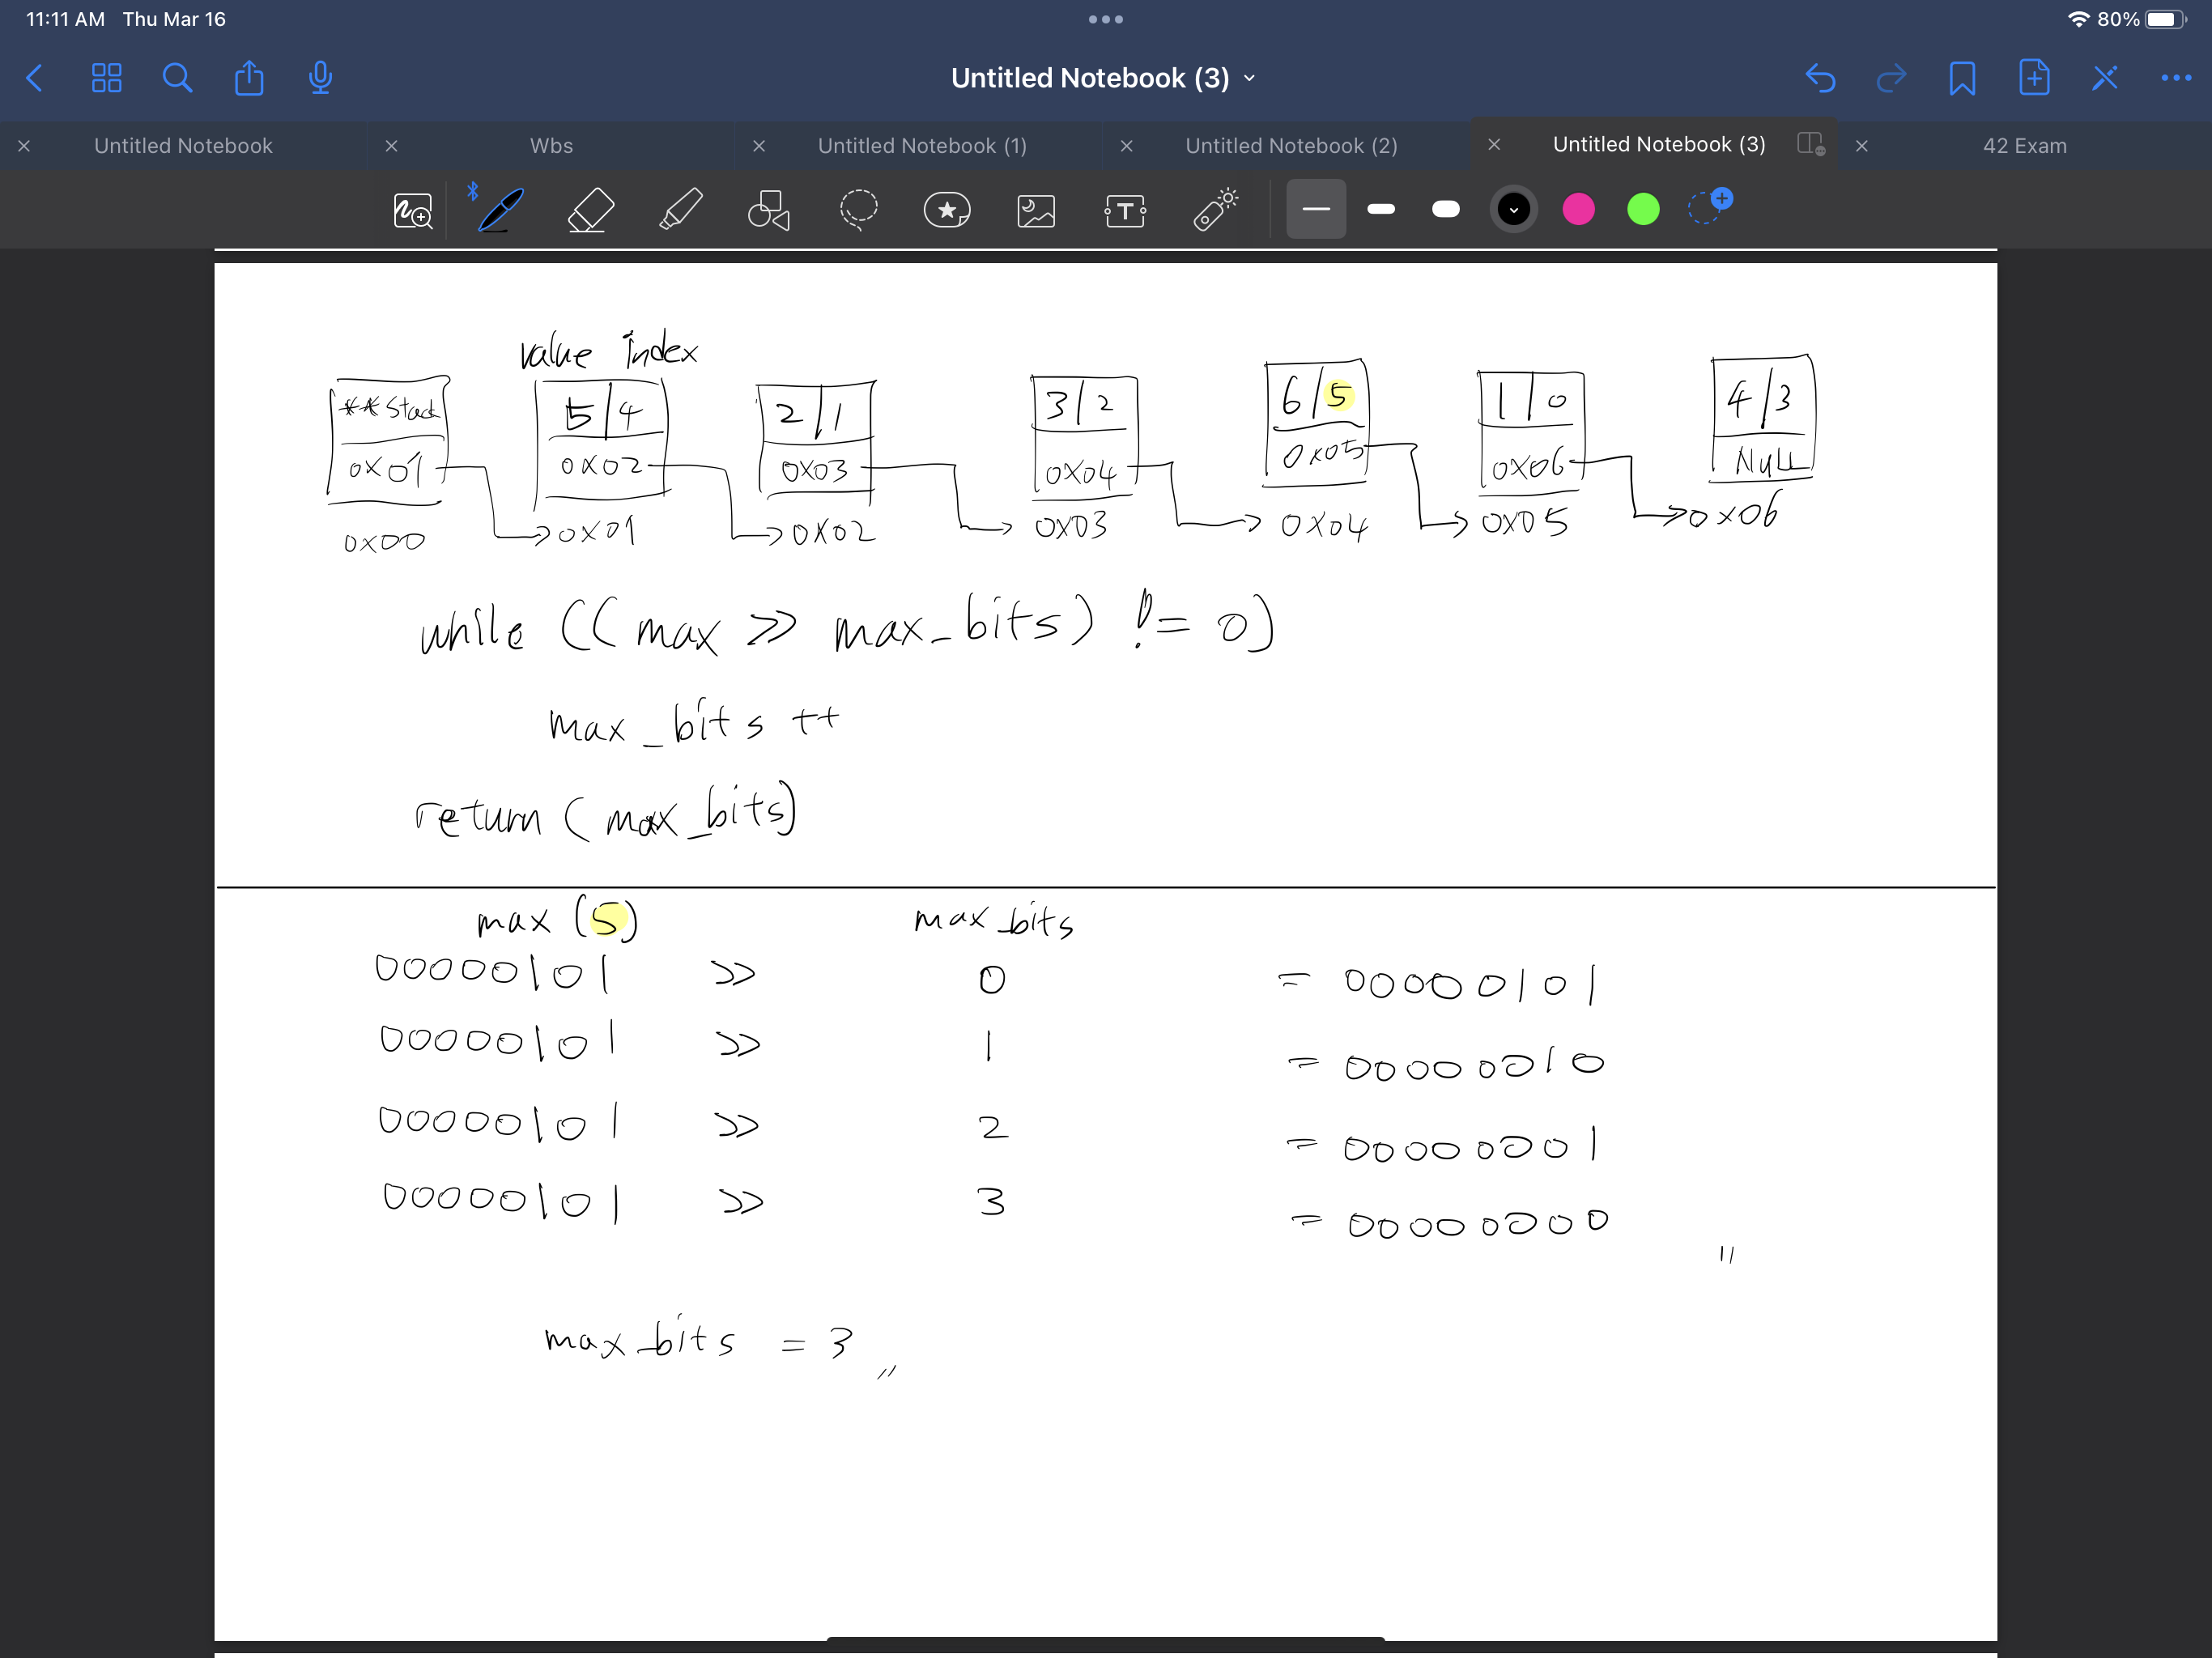 11:11 AM Thu Mar 16
80%
Untitled Notebook (3)
Untitled Notebook
Wbs
Untitled Notebook (1)
Untitled Notebook (2)
Untitled Notebook (3)
42 Exam
value index
**Stack 5/4 2/1 3/2 6/5 1/0 4/3
0x01 0x02 0x03 0x04 0x05 0x06 NULL
0x00 0x01 0x02 0x03 0x04 0x05 0x06
while ((max >> max_bits) != 0)
max_bits ++
return (max_bits)
max (5) max_bits
00000101 >> 0 = 00000101
00000101 >> 1 = 00000010
00000101 >> 2 = 00000001
00000101 >> 3 = 00000000 "
max_bits = 3 "